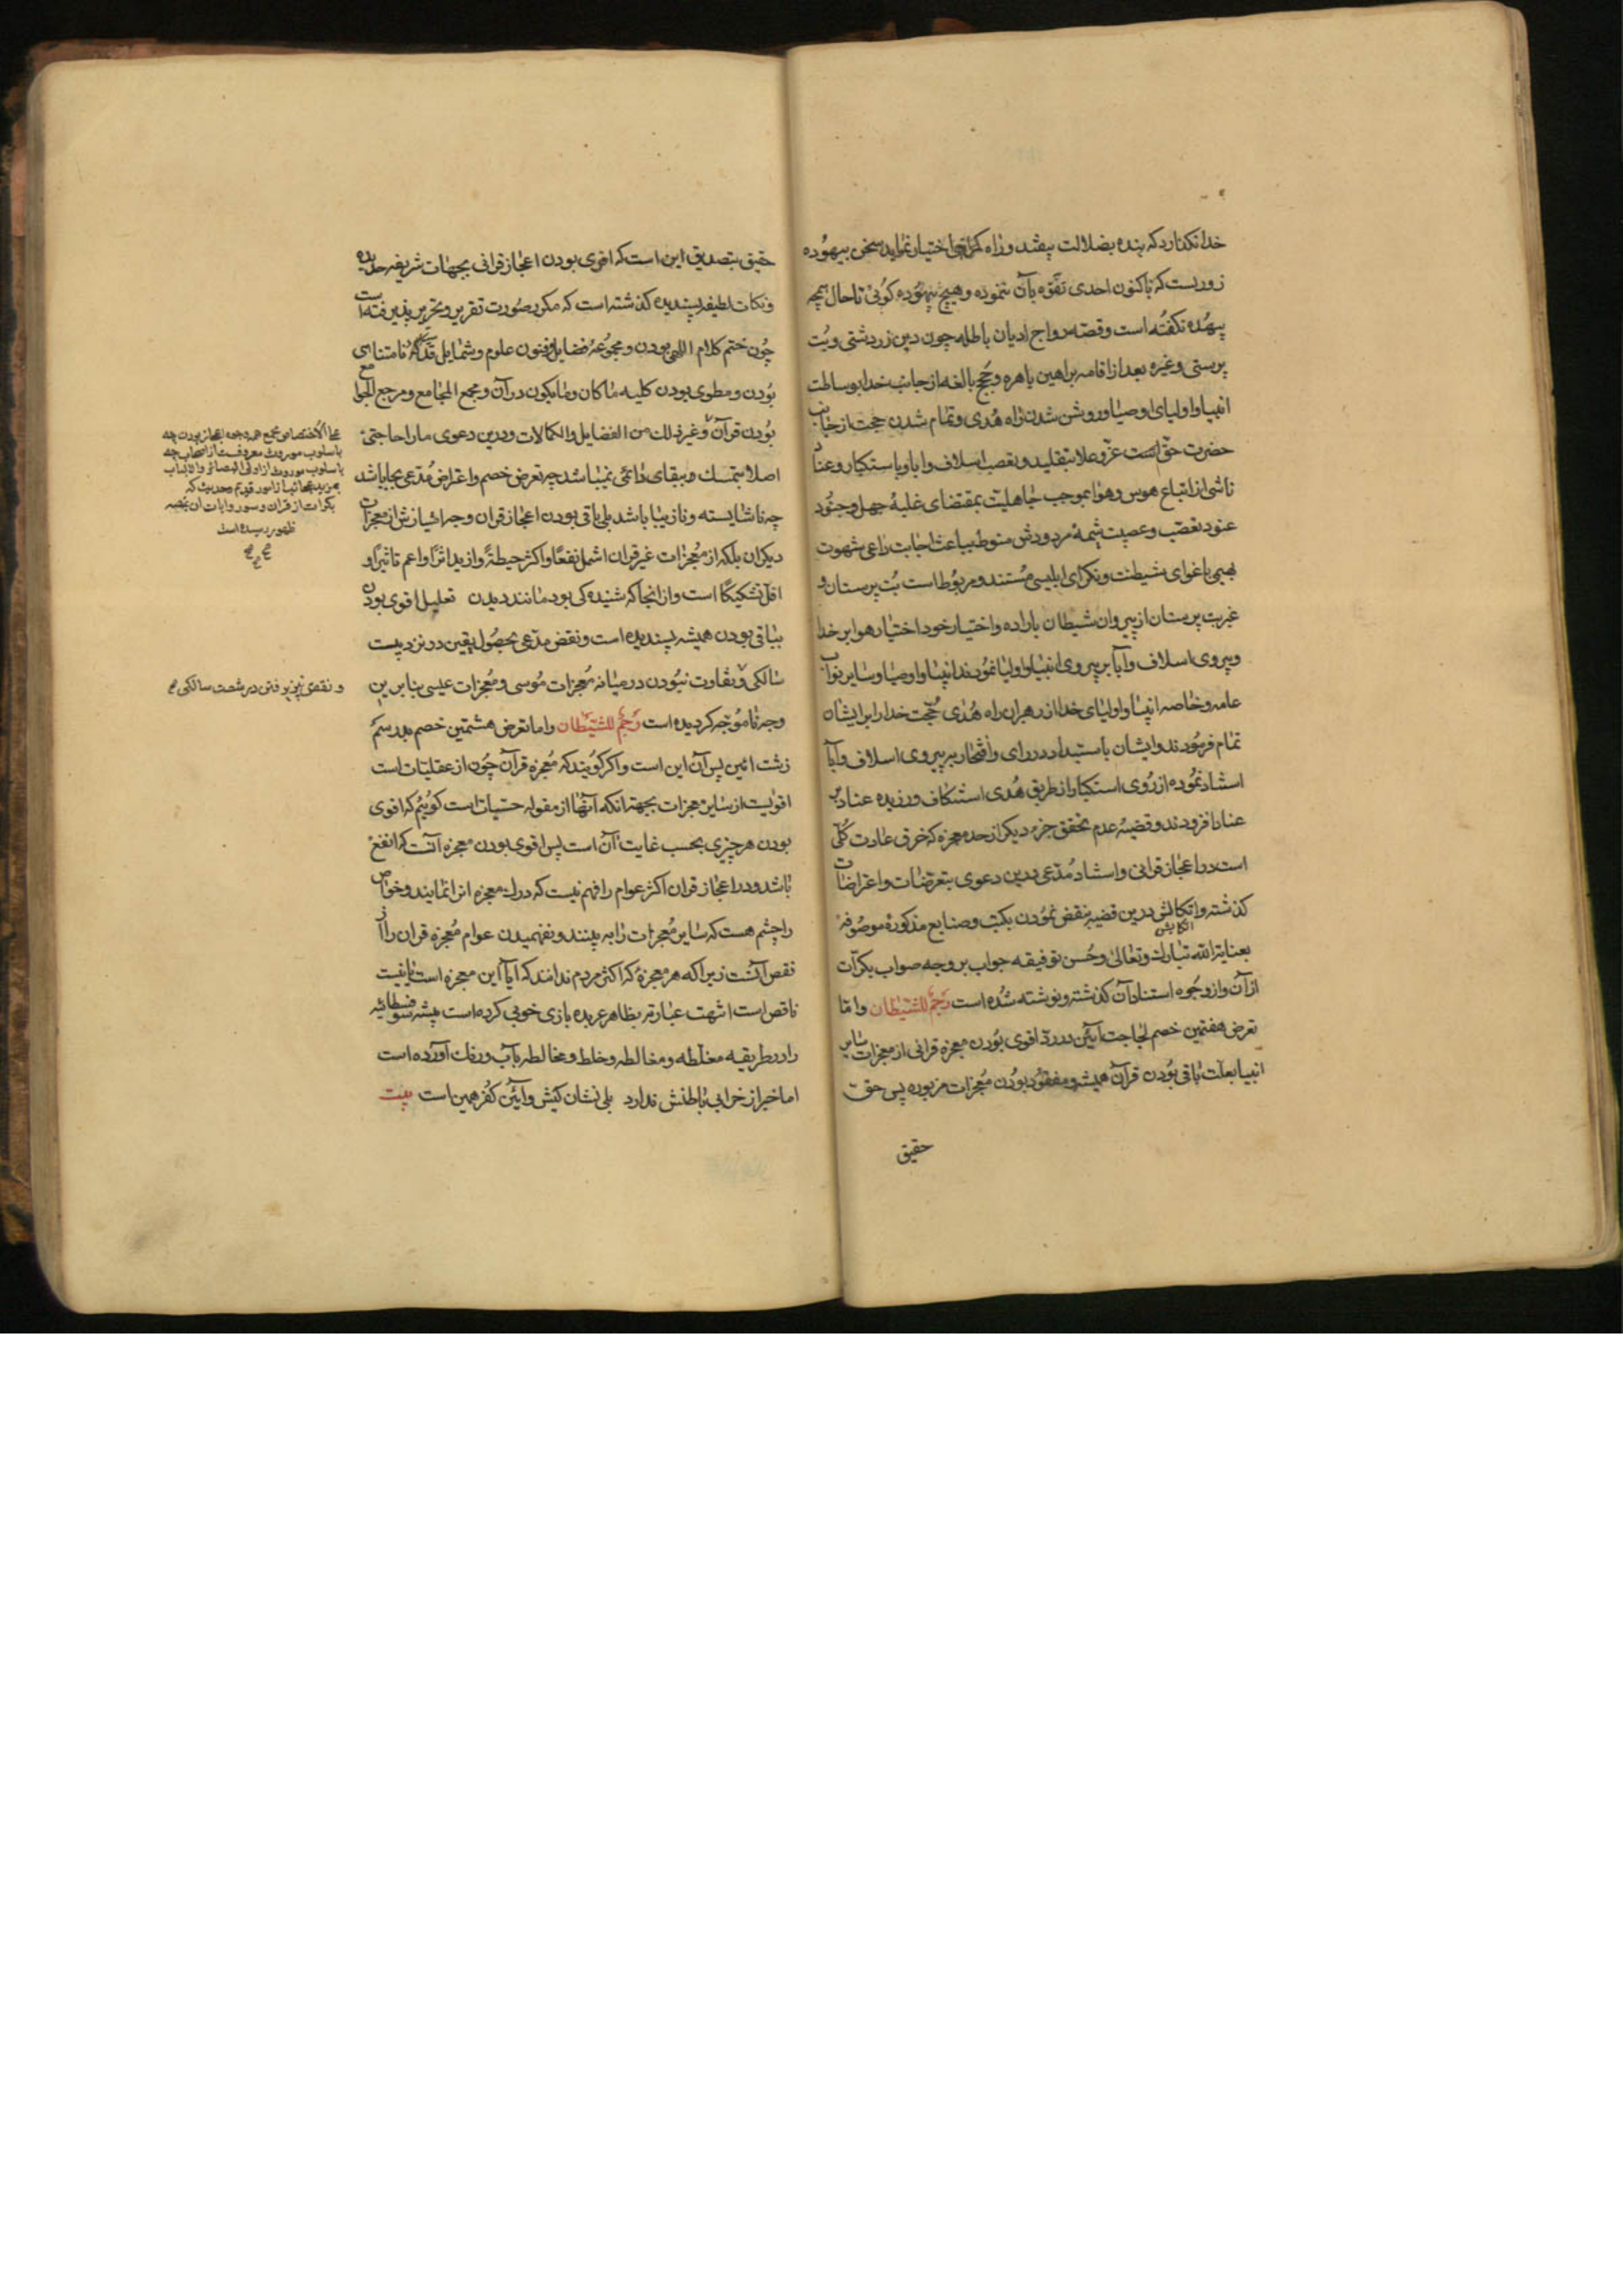 خدا نکذارد که بنده بضلالت بیفتد و راه کمراهی اختیار نماید سخن بیهوده
زوریست که تاکنون احدی تفوّه بآن ننموده و هیچ بیهوده کوئی تا حال همچه
بیهُده نکفته است و قصّه رواج ادیان باطله چون دین زردشتی و بُت
پرستی و غیره بعد از اقامه براهین باهره و حُجَج بالغه از جانب خدا بوساطت
انبیا و اولیا و اوصیا و روشن شدن راه هُدی و تمام شدن حجت از جانب
حضرت حقّ است عزّ و علا بتقلید و تعصب اسلاف و ابا و باستکبار و عناد
ناشی از اتباع هوس و هوا بموجب جاهلیّت بمقتضای غلبۀ جهل و جنُود
عنود تعصّب و عصبیت شیمۀ مردودش منوط بباعث اجابت داعی شهوت
بهیمی باغوای شیطنت و نکرای ابلیسی مُستند و مربُوط است بُت پرستان و
غیر بت پرستان از پیروان شیطان باراده و اختیار خود اختیار هوا بر خدا
و پیروی اسلاف و آبا بر پیروی انبیا و اولیا نمودند انبیا و اوصیا و سایر نوّاب
عامه و خاصه انبیا و اولیای خدا از رهبران راه هُدی حُجّت خدا را بر ایشان
تمام فرمُودند و ایشان باستبداد در رای و افتخار بر پیروی اسلاف و آبا
استناد نمُوده از رُوی استکبار از طریق هُدی استنکاف ورزیده عناد بر
عناد افزودند و قضیّه عدم تحقق جزء دیکر از حد معجزه که خرق عادت کُلّی
است در اعجاز قرانی و استناد مُدّعی درین دعوی بتعرّضات و اعتراضات
کذشته و اتکالش درین قضیه بنقض نمُودن بکتب و صنایع مذکورۀ موصُوفه
اتکایش
بعنایة الله تبارک و تعالی و حُسن توفیقه جواب بر وجه صواب بکرّات
از آن و از وجُوه استناد آن کذشته و نوشته شُده است رَجمٌ للشَّیطان و امّا
تعرض هفتمین خصم لجاجت آیین در ردّ اقوی بُودن معجزه قرانی از معجزات سایر
انبیا بعلّت باقی بُودن قرآن همیشه و مفقُود بُودن مُعجزات مزبوره پس حق
حقیق
حقیق بتصدیق این است که اقوی بودن اعجاز قرانی بجهات شریفه عدیده
و نکات لطیفه پسندیده کذشته است که مکرر صُورت تقریر و تحریر پذیرفته است
چُون ختم کلام اللهی بودن و مجموعۀ فضایل و فنون علوم و شمایل نامتناهی
بُودن و مطوی بودن کلیه ما کان و ما یکون در آن و مجمع المجامع و مرجع الجوامع
بُودن قرآن و غیر ذلک من الفضایل و الکمالات و درین دعوی ما را حاجتی
اصلا بتمسک ببقای دائمی نمیباشد چه تعرض خصم و اعتراض مُدّعی بجا باشد
چه ناشایسته و نازیبا باشد بلی باقی بودن اعجاز قران وجه امتیازش از معجزات
دیکران بلکه از مُعجزات غیر قران اشمل نفعًا و اکثر حیطةً و ازید اثرًا و اعم تاثیرًا و
اقلّ تشکیکًا است و از انجا که شنیده کی بود مانند دیدن تعلیل اقوی بودن
بباقی بودن همیشه پسندیده است و نقض مدّعی بحصُول یقین در نزد بیست
سالکی و تفاوت نبُودن در میانه مُعجزات مُوسی و مُعجزات عیسی بنابرین
وجه ناموجّه کردیده است رَجمٌ للشَّیطان و اما تعرض هشتمین خصم بدرسم
زشت ائین پس آن این است و اکر کویند که مُعجزه قرآن چُون از عقلیّات است
اقوَیست از سایر معجزات بجهة انکه آنها از مقوله حسیّات است کوئیم که اقوی
بودن هر چیزی بحسب غایت آن است پس اقوی بودن معجزه آنست که انفع
باشد و در اعجاز قران اکثر عوام را فهم نیست که درک معجزه انرا نمایند و خواص
را چشم هست که سایر مُعجزات را به بینند و نفهمیدن عوام مُعجزه قران را از
نقص آنست زیرا که هر معجزۀ که اکثر مردم ندانند که ایا این معجزه است یا نیست
ناقص است انتهت عبارته بظاهر عربده بازی خوبی کرده است پیشه سوفسطائیه
را در طریقه مغلطه و مغالطه و خلط و مخالطه بآب و رنک آورده است
اما خبر از خرابی باطنش ندارد بلی نشان کیش و آئین کفُر همین است بیت
باسلوب موروث معروفست از اصحاب چه
بکرات از قران و سور و ایات ان بحصه
ظهور رسیده است